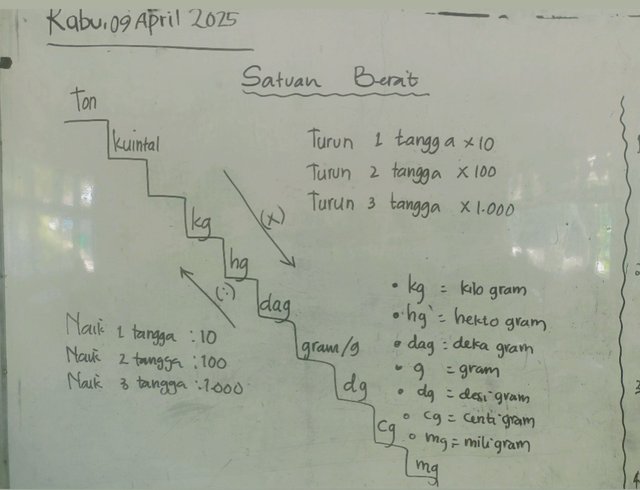 Kabu, 09 April 2025
Satuan Berat
Ton
kuintal
kg
hg
dag
gram/g
dg
cg
mg
(x)
(:)
Turun 1 tangga x 10
Turun 2 tangga x 100
Turun 3 tangga x 1.000
Naik 1 tangga : 10
Naik 2 tangga : 100
Naik 3 tangga : 1.000
• kg = kilo gram
• hg = hekto gram
• dag = deka gram
• g = gram
• dg = desi gram
• cg = centi gram
• mg = mili gram